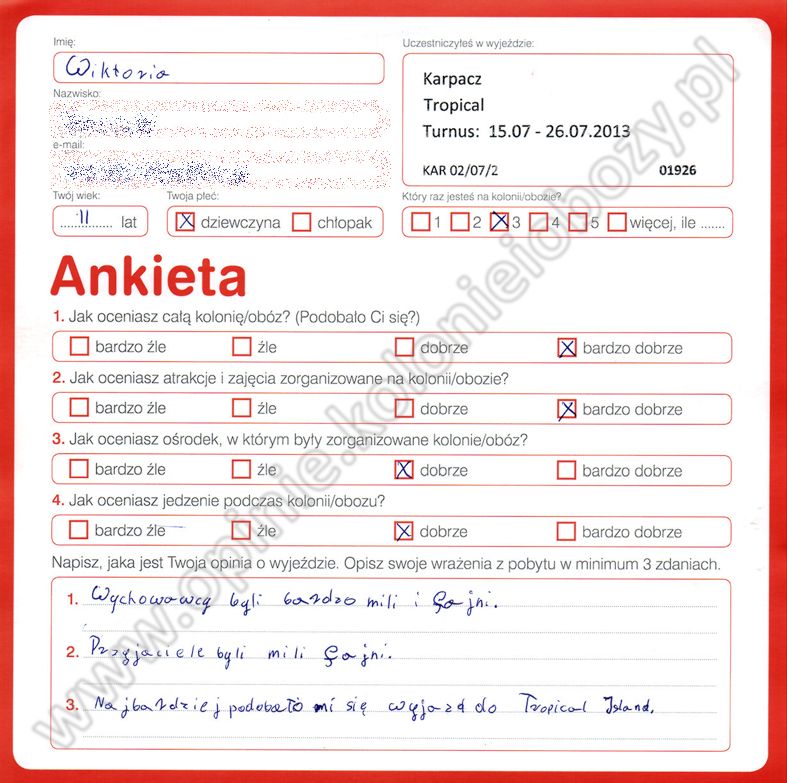 Imię:
Wiktoria
Nazwisko:
e-mail:
Twój wiek:
11 lat
Twoja płeć:
dziewczyna chłopak
Uczestniczyłeś w wyjeździe:
Karpacz
Tropical
Turnus: 15.07 - 26.07.2013
KAR 02/07/2 01926
Który raz jesteś na kolonii/obozie?
1 2 3 4 5 więcej, ile .......
Ankieta
1. Jak oceniasz całą kolonię/obóz? (Podobało Ci się?)
bardzo źle źle dobrze bardzo dobrze
2. Jak oceniasz atrakcje i zajęcia zorganizowane na kolonii/obozie?
bardzo źle źle dobrze bardzo dobrze
3. Jak oceniasz ośrodek, w którym były zorganizowane kolonie/obóz?
bardzo źle źle dobrze bardzo dobrze
4. Jak oceniasz jedzenie podczas kolonii/obozu?
bardzo źle źle dobrze bardzo dobrze
Napisz, jaka jest Twoja opinia o wyjeździe. Opisz swoje wrażenia z pobytu w minimum 3 zdaniach.
1. Wychowawcy byli bardzo mili i fajni.
2. Przyjaciele byli mili fajni.
3. Najbardziej podobało mi się wyjazd do Tropical Island.
www.opinie.kolonieiobozy.pl